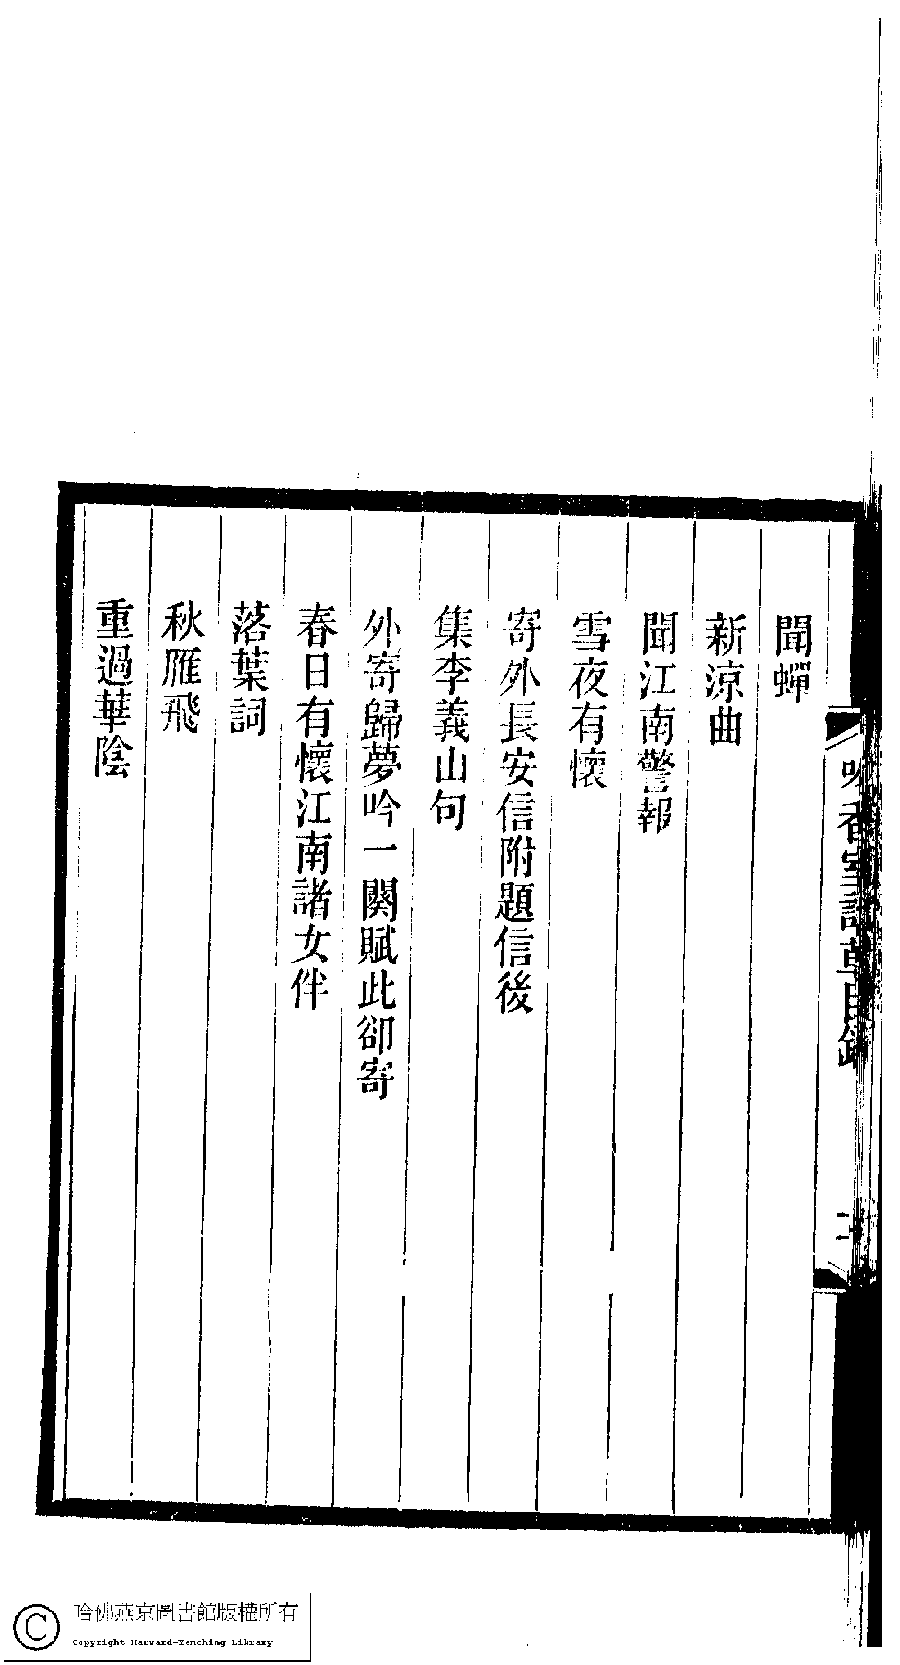 聞蟬
新涼曲
聞江南警報
雪夜有懷
寄外長安信附題信後
集李義山句
外寄歸夢吟一闋賦此卻寄
春日有懷江南諸女伴
落葉詞
秋雁飛
重過華陰
香室詩草目錄
哈佛燕京圖書館版權所有
Copyright Harvard-Yenching Library